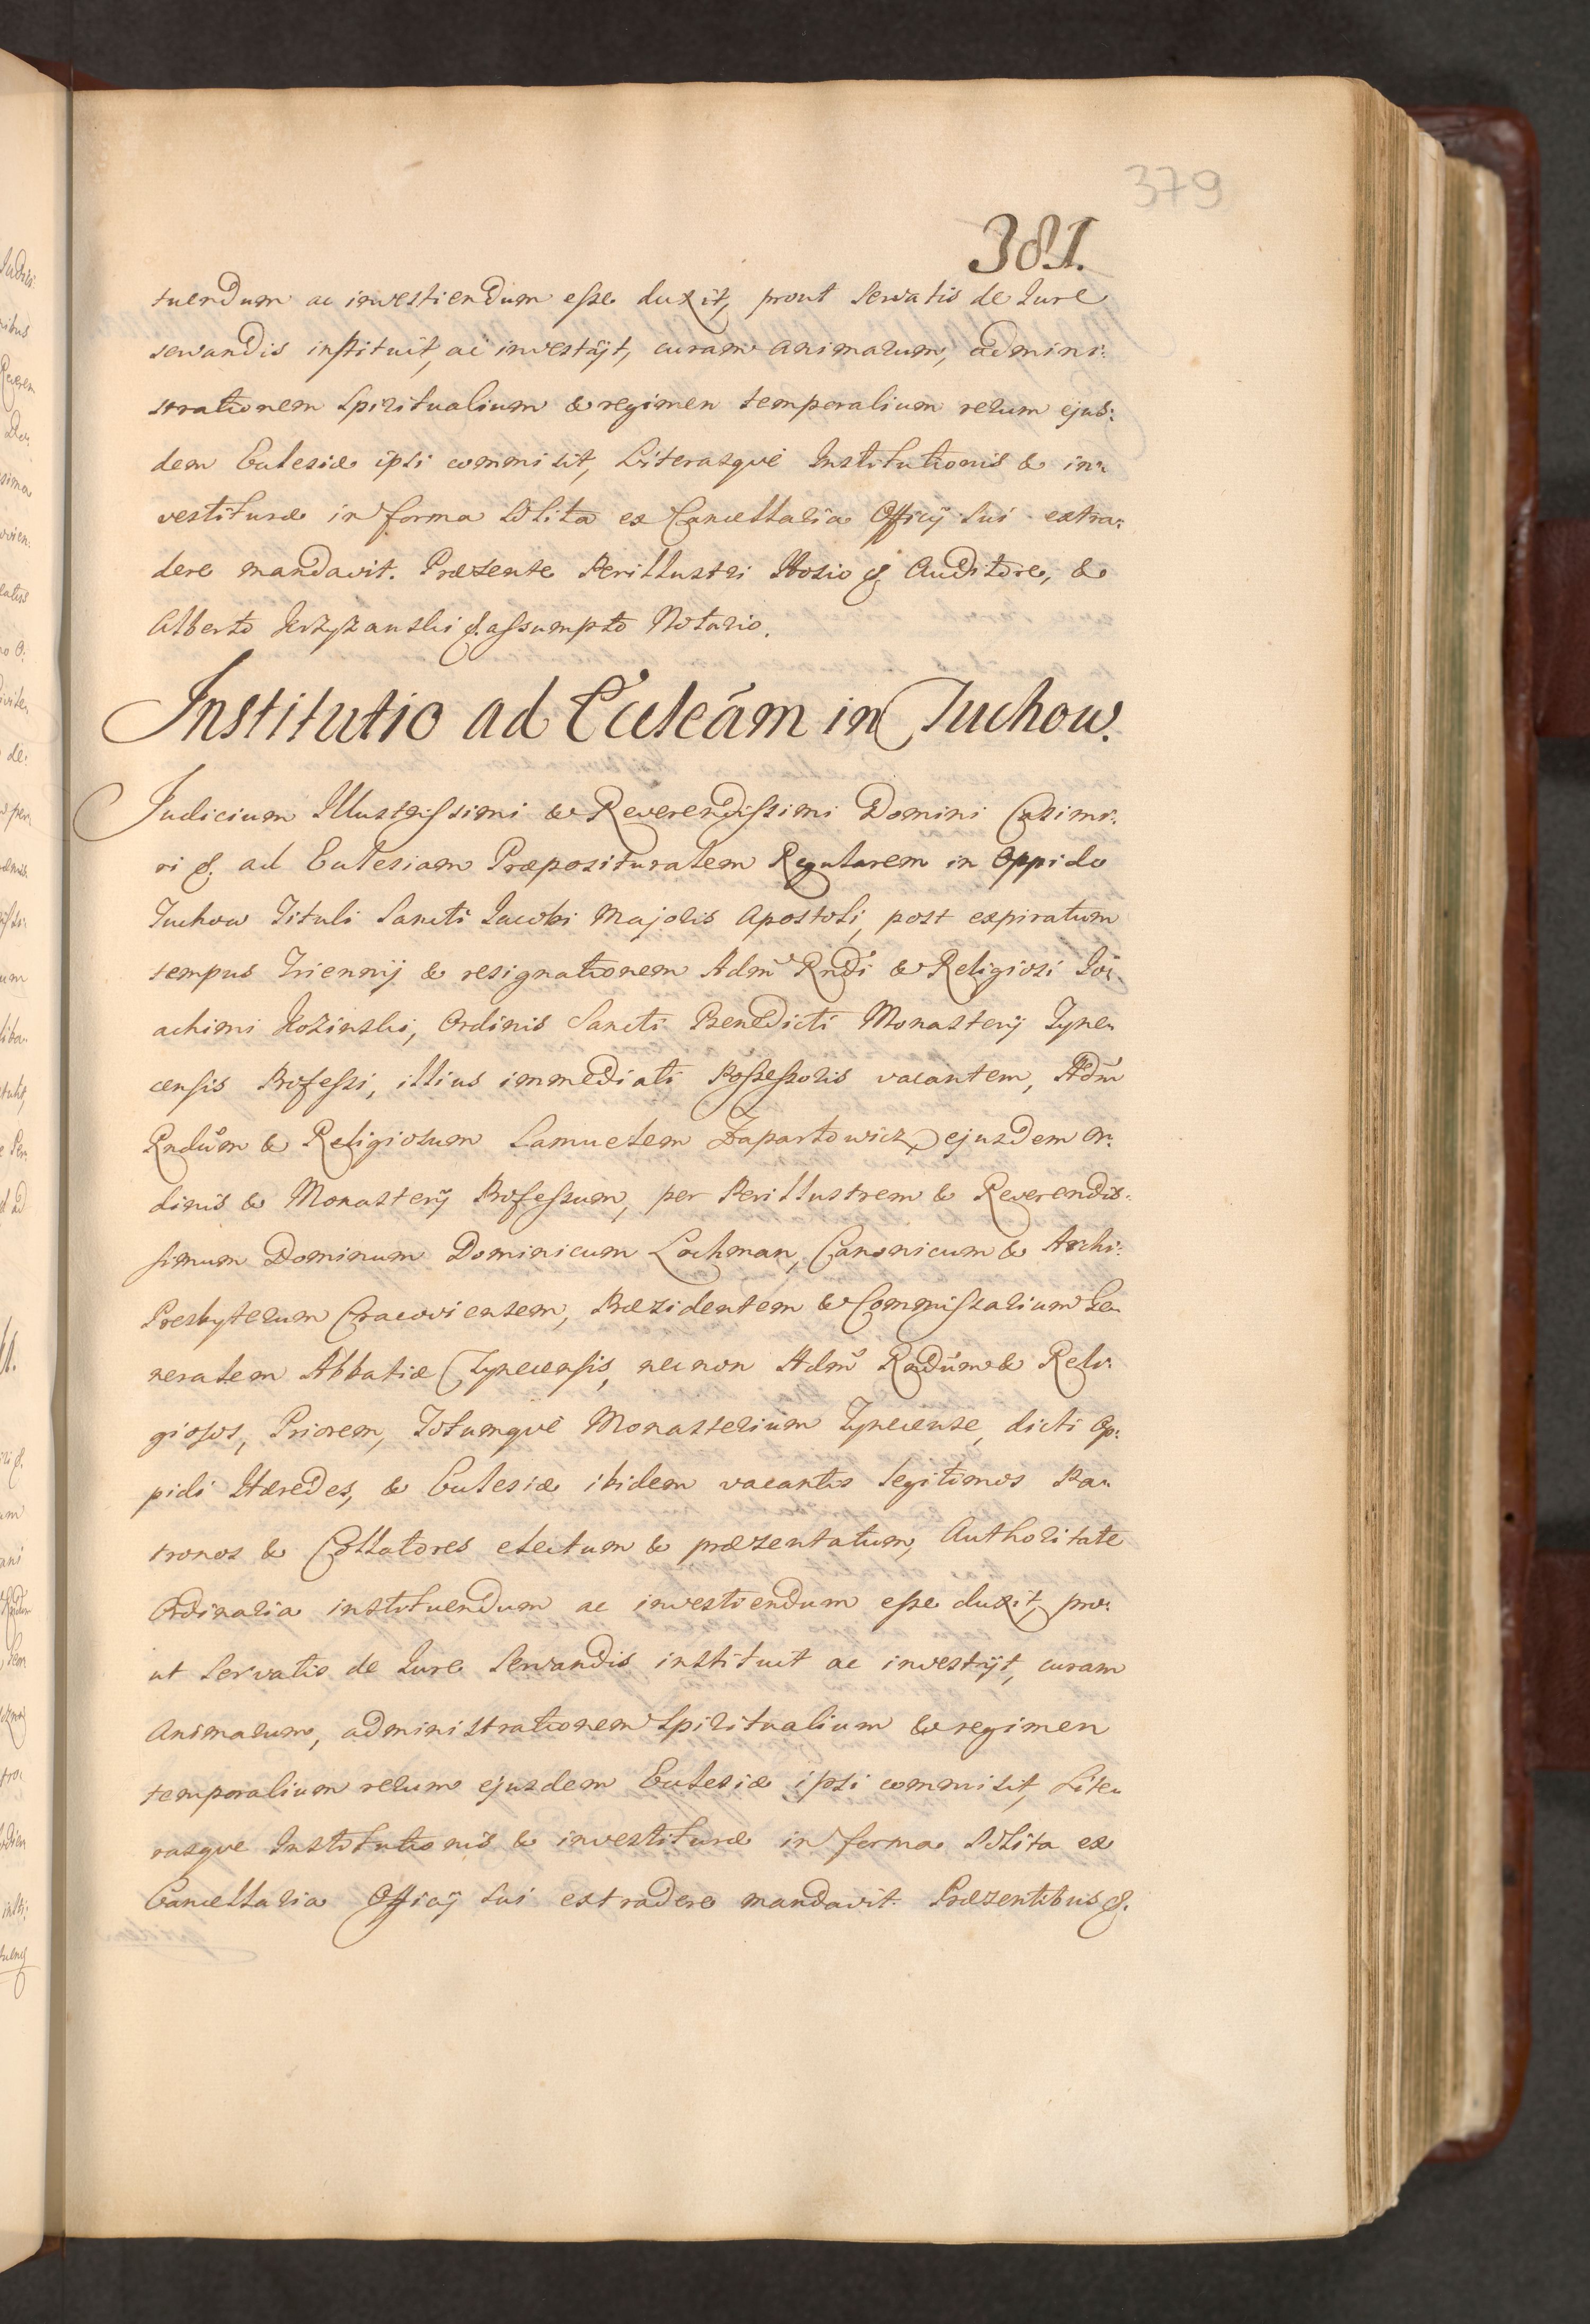 379
381.
tuendum ac investiendum esse duxit, prout servatis de Iure
servandis instituit, ac investijt, curam animarum, admini:
strationem Spiritualium & regimen temporalium rerum ejus:
dem Ecclesiæ ipsi commisit, Literasquè Institutionis & in:
vestituræ in forma solita ex Cancellaria Officij sui extra:
dere mandavit. Præsente Perillustri Hosio &. Auditore, &
Alberto Krzyżanski &. assumpto Notario.
Institutio ad Eccleám in Tuchow.
Judicium Illustrissimi & Reverendissimi Domini Casimi:
ri &. ad Ecclesiam Præposituralem Regularem in Oppido
Tuchow Tituli Sancti Iacobi Majoris Apostoli, post expiratum
tempus Triennij & resignationem Adm Rndi & Religiosi Io:
achimi Kozinski, Ordinis Sancti Benedicti Monasterij Tyne:
censis Professi, illius immediati Possessoris vacantem, Adm
Rndum & Religiosum Samuelem Zapartowicz ejusdem Or:
dinis & Monasterij Professum, per Perillustrem & Reverendis:
simum Dominum Dominicum Lochman, Canonicum & Archi:
Presbyterum Cracoviensem, Præsidentem & Commissarium Ge:
neralem Abbatiæ Tynecensis, necnon Adm Rndum & Reli:
giosos, Priorem, Totumquè Monasterium Tynecense, dicti Op:
pidi Hæredes, & Ecclesiæ ibidem vacantis legitimos Pa:
tronos & Collatores electum & præsentatum, Authoritate
Ordinaria instituendum ac investiendum esse duxit, pro:
ut servatis de Iure servandis instituit ac investijt, curam
Animarum, administrationem Spiritualium & regimen
temporalium rerum ejusdem Ecclesiæ ipsi commisit, Lite:
rasque Institutionis & investituræ in forma solita ex
Cancellaria Officij sui extradere mandavit. Præsentibus &.